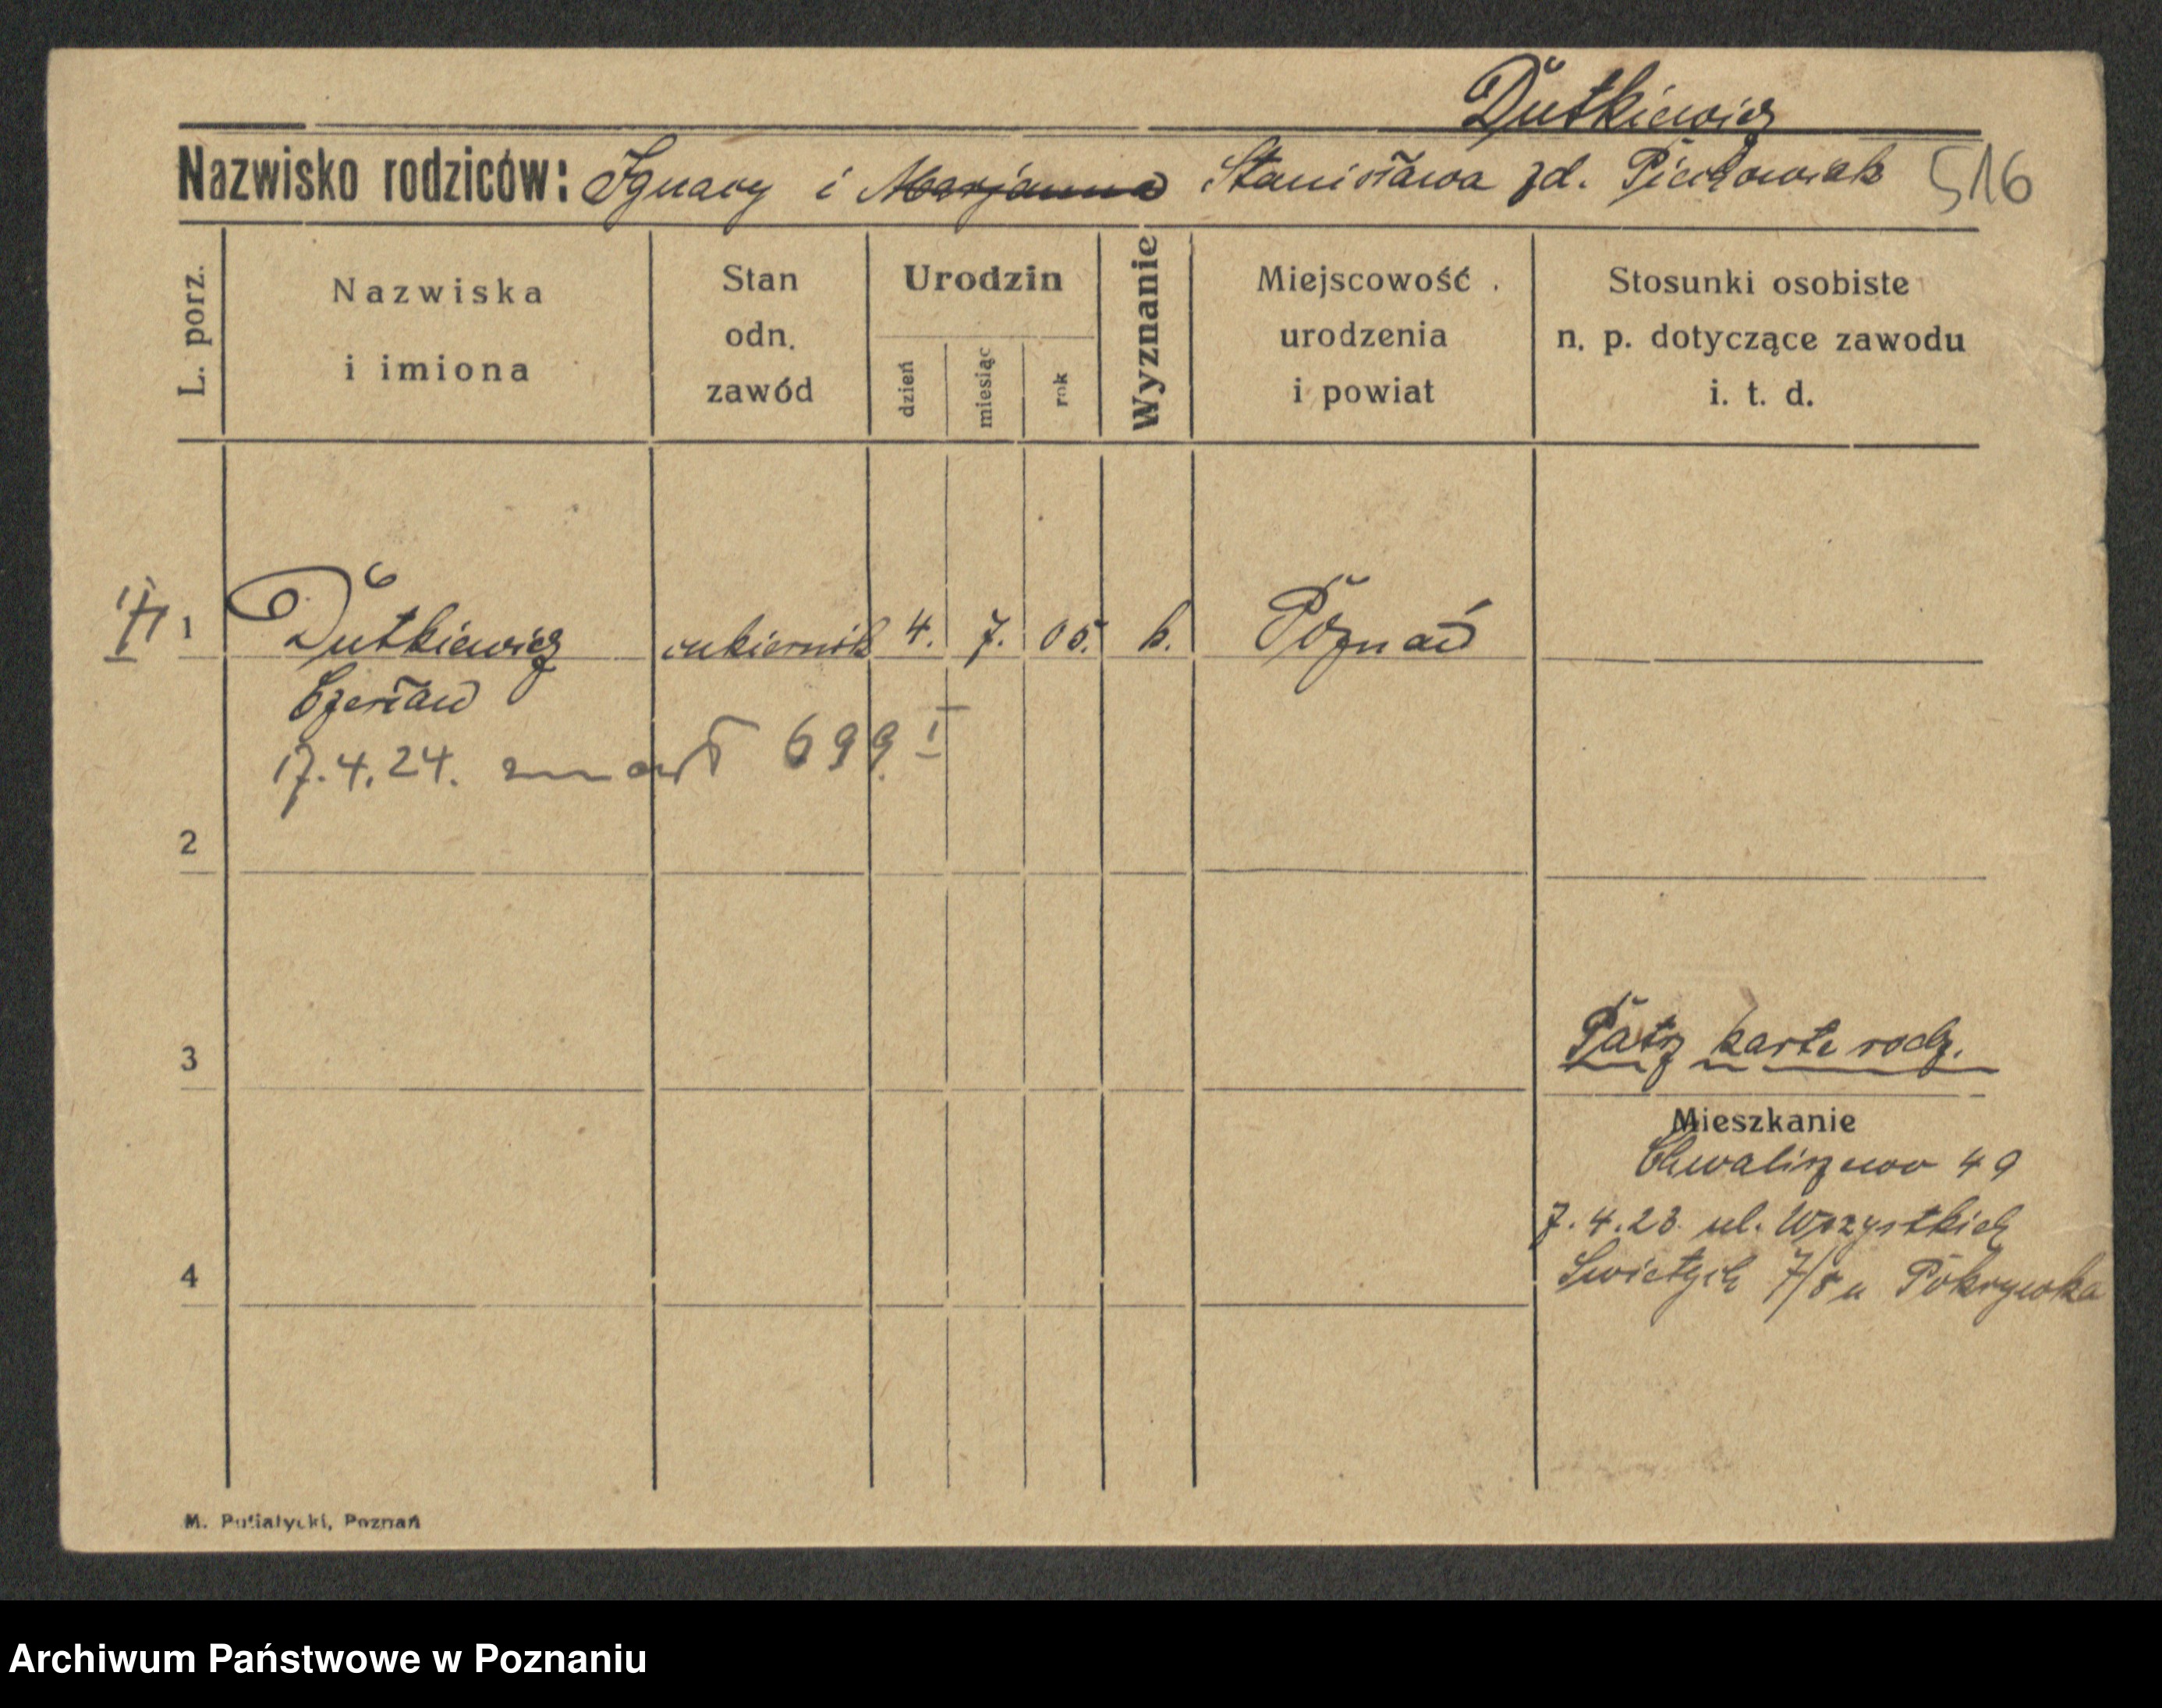 Dutkiewicz
Nazwisko rodziców: Ignacy i Marjanna Stanisława zd. Piechowiak 516
L. porz.
Nazwiska
i imiona
Stan
odn.
zawód
Urodzin
dzień
miesiąc
rok
Wyznanie
Miejscowość
urodzenia
i powiat
Stosunki osobiste
n. p. dotyczące zawodu
i. t. d.
1 Dutkiewicz cukiernik 4. 7. 05. k. Poznań
Czesław
17.4.24. zmarł 699 I
2
3
Patrz kartę rodz.
Mieszkanie
Chwaliszewo 49
7.4.23 ul. Wszystkich
4
Świętych 7/8 u Pokrywka
M. Putiatycki, Poznań
Archiwum Państwowe w Poznaniu